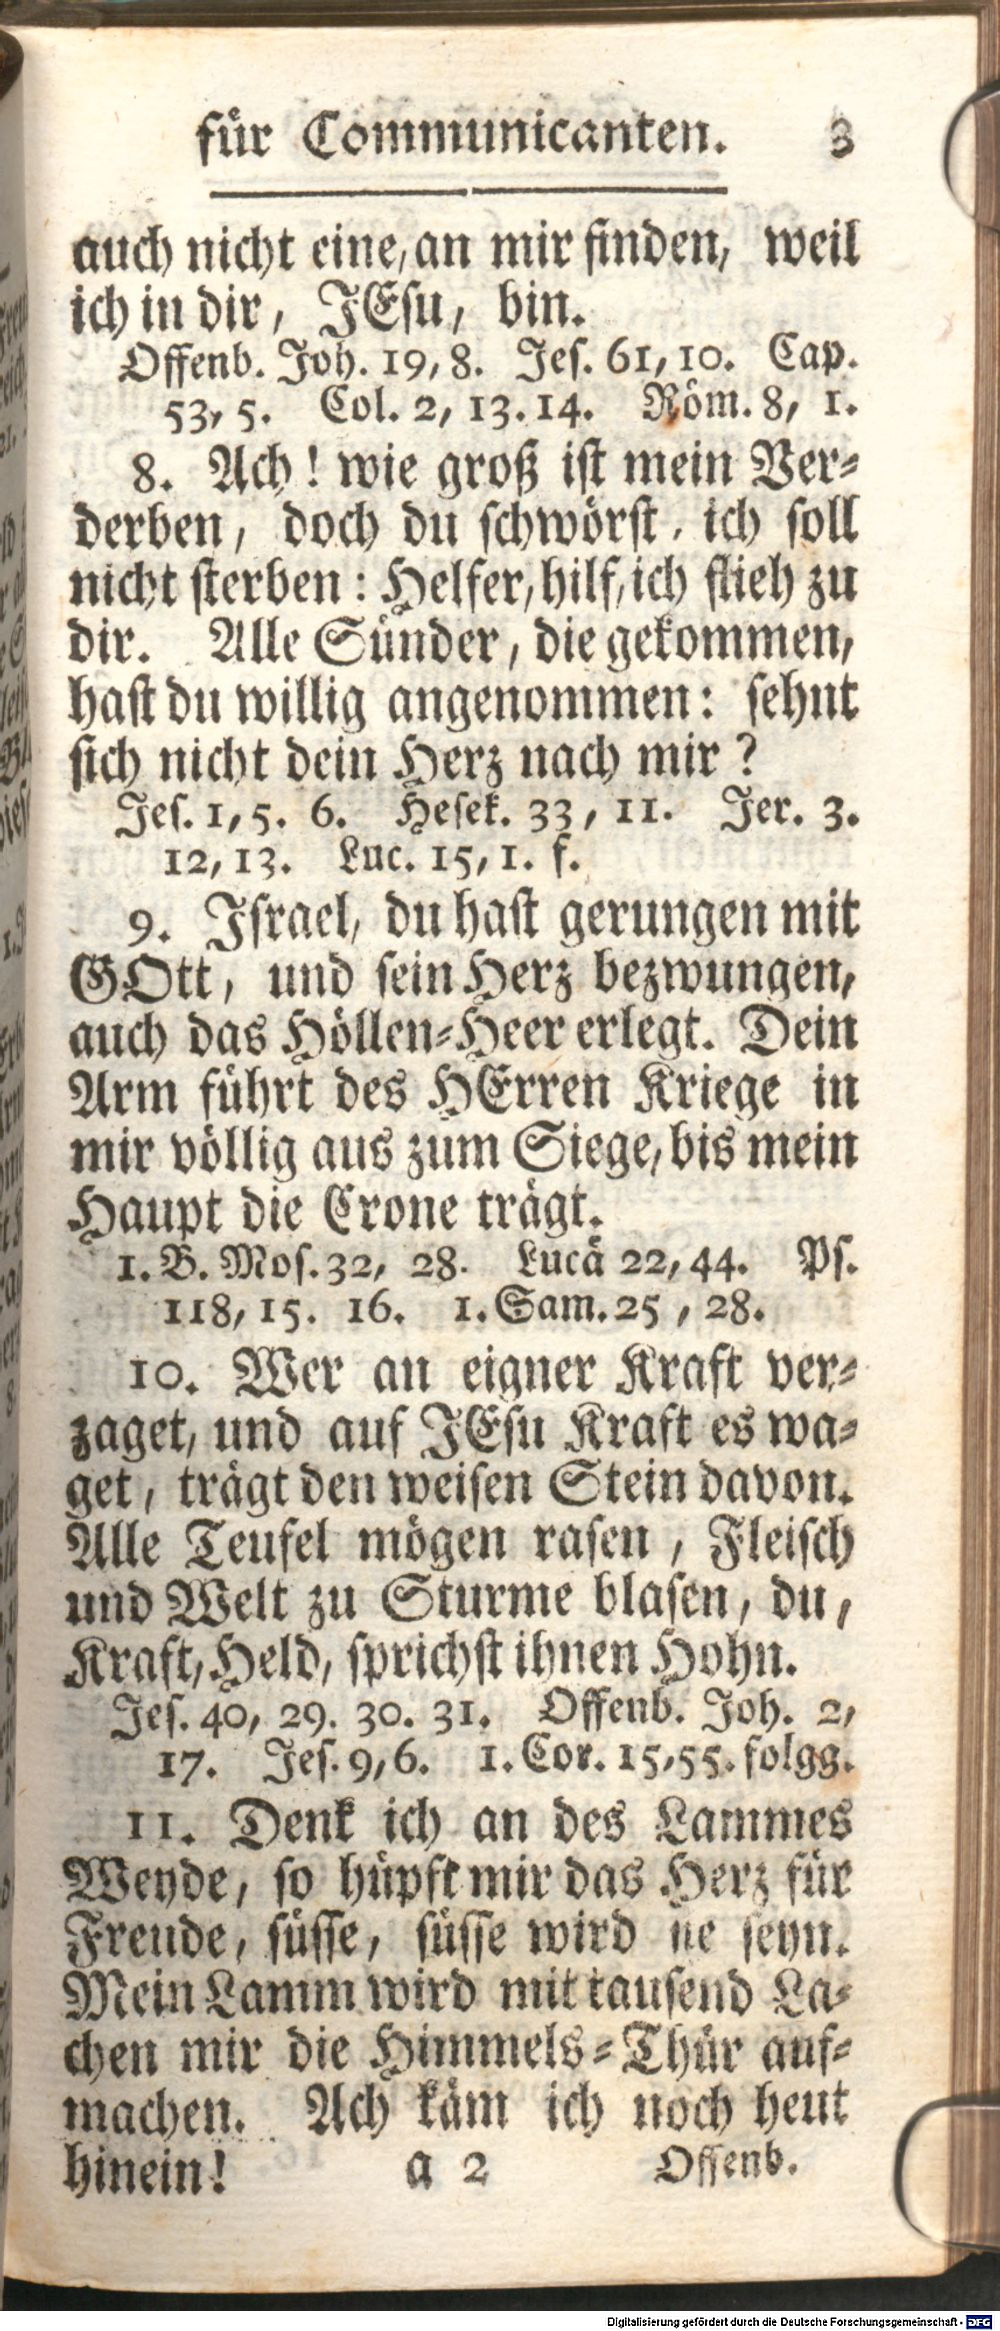 für Communicanten. 3
auch nicht eine, an mir finden, weil
ich in dir, JEsu, bin.
Offenb. Joh. 19, 8. Jes. 61, 10. Cap.
53, 5. Col. 2, 13. 14. Röm. 8, 1.
8. Ach! wie groß ist mein Ver-
derben, doch du schwörst, ich soll
nicht sterben: Helfer, hilf, ich flieh zu
dir. Alle Sünder, die gekommen,
hast du willig angenommen: sehnt
sich nicht dein Herz nach mir?
Jes. 1, 5. 6. Hesek. 33, 11. Jer. 3.
12, 13. Luc. 15, 1. f.
9. Israel, du hast gerungen mit
GOtt, und sein Herz bezwungen,
auch das Höllen-Heer erlegt. Dein
Arm führt des HErren Kriege in
mir völlig aus zum Siege, bis mein
Haupt die Crone trägt.
1. B. Mos. 32, 28. Lucä 22, 44. Ps.
118, 15. 16. 1. Sam. 25, 28.
10. Wer an eigner Kraft ver-
zaget, und auf JEsu Kraft es wa-
get, trägt den weisen Stein davon.
Alle Teufel mögen rasen, Fleisch
und Welt zu Sturme blasen, du,
Kraft, Held, sprichst ihnen Hohn.
Jes. 40, 29. 30. 31. Offenb. Joh. 2,
17. Jes. 9, 6. 1. Cor. 15, 55. folgg.
11. Denk ich an des Lammes
Weyde, so hüpft mir das Herz für
Freude, süsse, süsse wird sie seyn.
Mein Lamm wird mit tausend La-
chen mir die Himmels-Thür auf-
machen. Ach käm ich noch heut
hinein! a 2 Offenb.
Digitalisierung gefördert durch die Deutsche Forschungsgemeinschaft - DFG